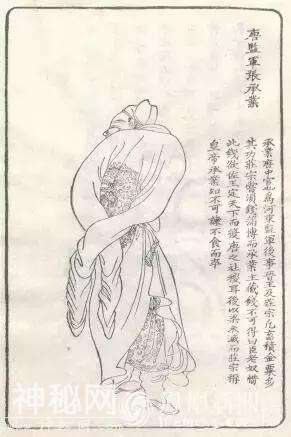 唐監軍張承業
承業唐中官也為河東監軍後事晉王及莊宗凡畜積金粟多
其功莊宗嘗須錢蒲博而承業主藏錢不可得曰臣老奴惜
此錢欲佐王定天下而復唐之社稷耳後以梁未滅而莊宗稱
皇帝承業知不可諫不食而卒
神秘网